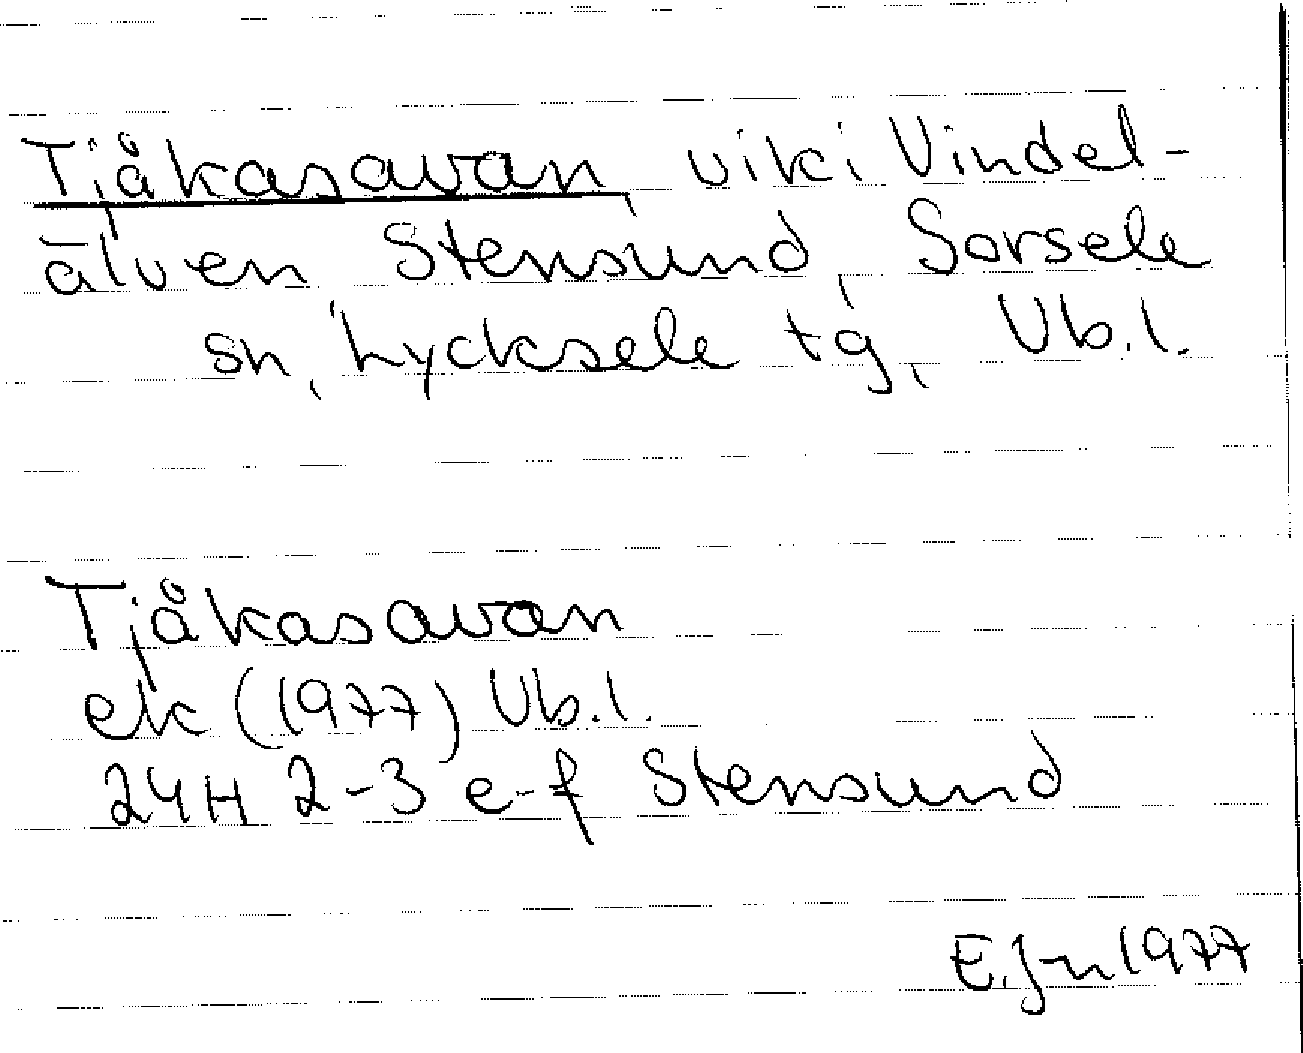 Tjåkasavan, vik i Vindel-
älven Stensund, Sorsele
sn, Lycksele tg, Vb.l.
Tjåkasavan
ek (1977) Vb.l.
24H 2-3 e-f Stensund
E.Jn 1977